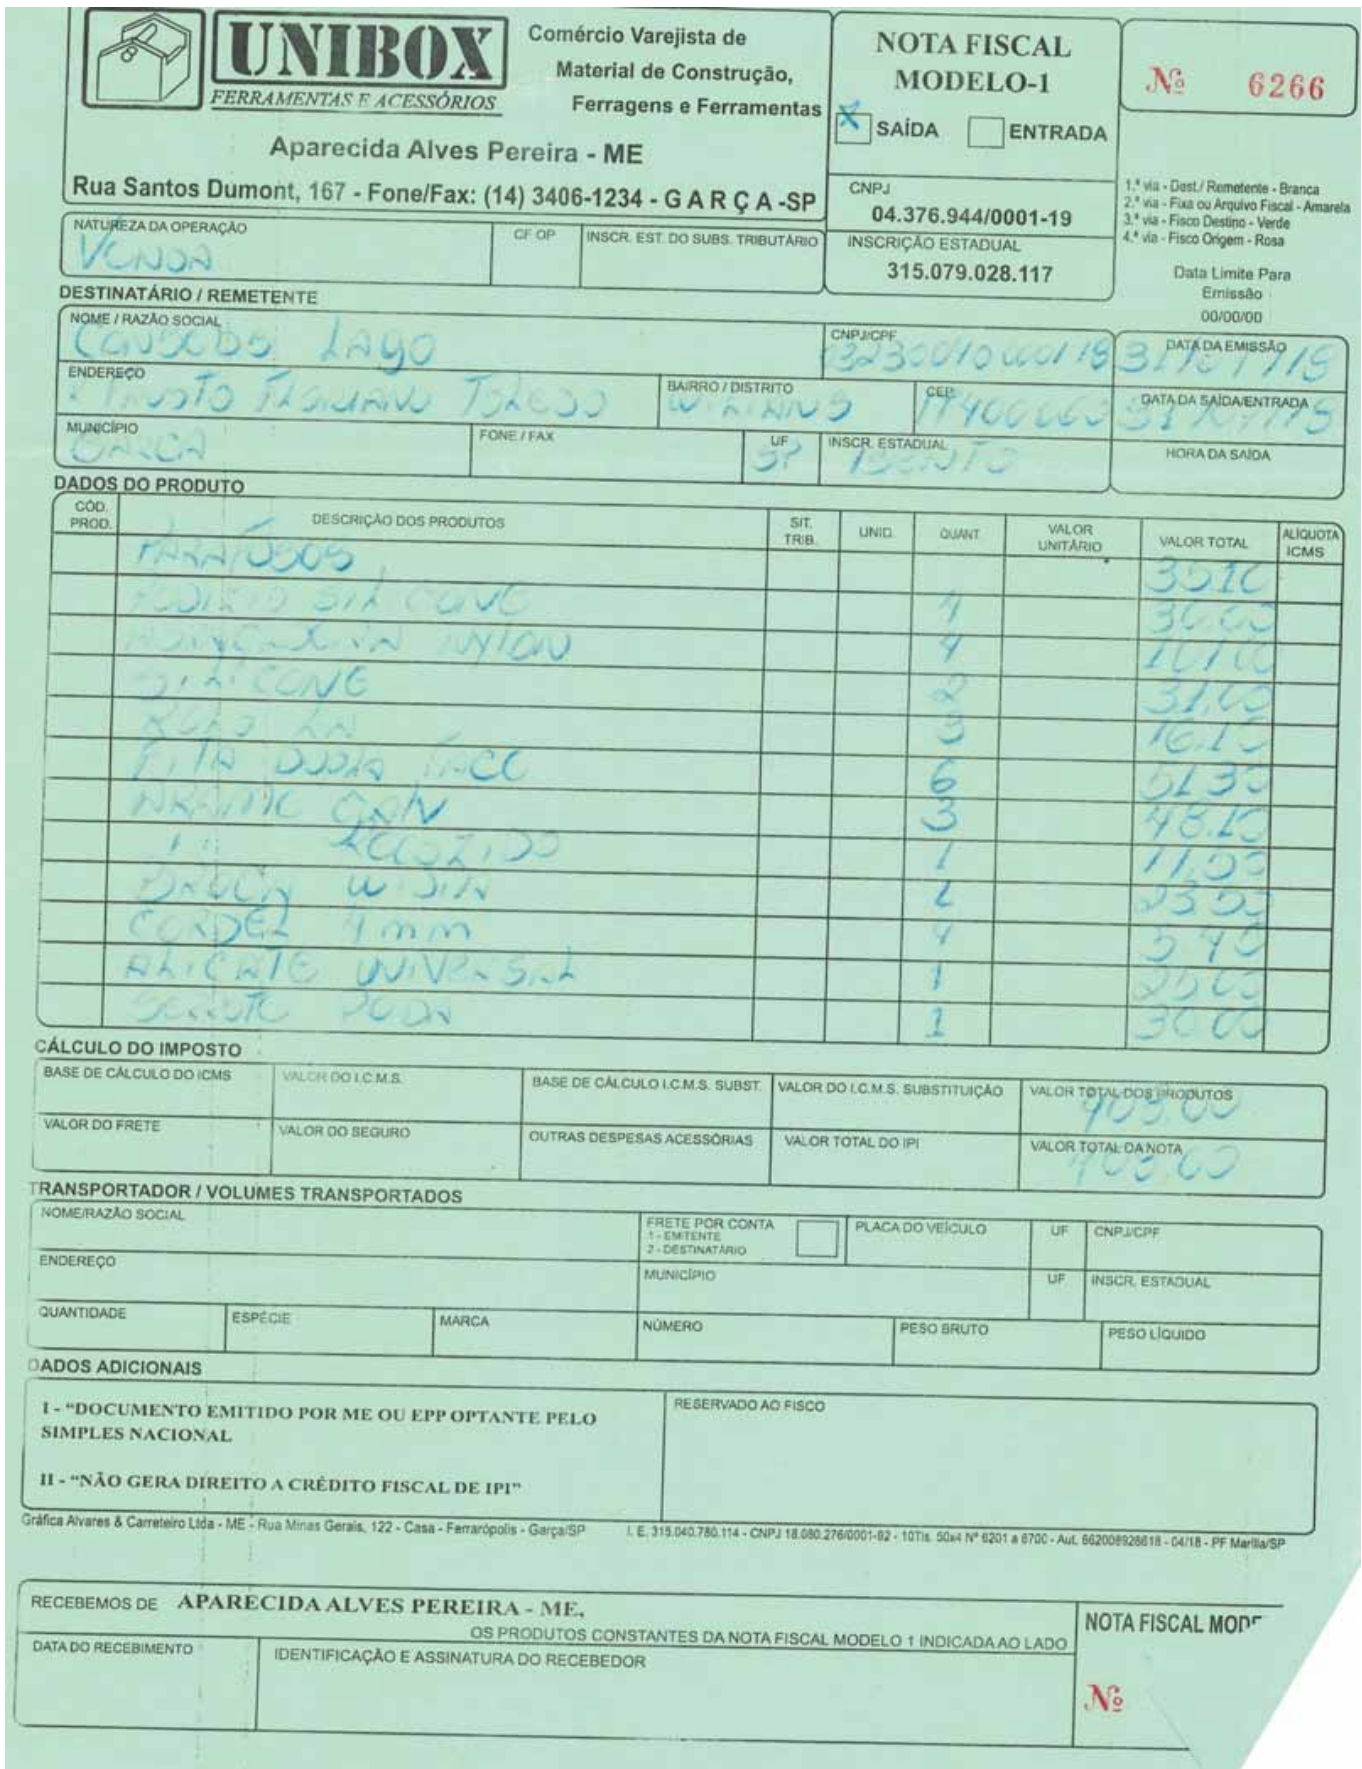 UNIBOX
FERRAMENTAS E ACESSÓRIOS
Comércio Varejista de
Material de Construção,
Ferragens e Ferramentas
Aparecida Alves Pereira - ME
Rua Santos Dumont, 167 - Fone/Fax: (14) 3406-1234 - GARÇA-SP
NOTA FISCAL
MODELO-1
X SAÍDA ENTRADA
Nº 6266
CNPJ
04.376.944/0001-19
INSCRIÇÃO ESTADUAL
315.079.028.117
1.ª via - Dest./ Remetente - Branca
2.ª via - Fixa ou Arquivo Fiscal - Amarela
3.ª via - Fisco Destino - Verde
4.ª via - Fisco Origem - Rosa
Data Limite Para
Emissão
00/00/00
NATUREZA DA OPERAÇÃO CF OP INSCR. EST. DO SUBS. TRIBUTÁRIO
VENDA
DESTINATÁRIO / REMETENTE
NOME / RAZÃO SOCIAL CNPJ/CPF DATA DA EMISSÃO
LAGO
ENDEREÇO BAIRRO / DISTRITO CEP DATA DA SAÍDA/ENTRADA
TOLEDO
MUNICÍPIO FONE / FAX UF INSCR. ESTADUAL HORA DA SAÍDA
GARCA SP ISENTO
DADOS DO PRODUTO
CÓD. PROD. DESCRIÇÃO DOS PRODUTOS SIT. TRIB. UNID. QUANT. VALOR UNITÁRIO VALOR TOTAL ALÍQUOTA ICMS
PARAFUSOS 35.10
SILICONE 30.00
NYLON 4
SILICONE 2 31.00
3 16.10
FITA DUPLA FACE 6 51.30
ARAME GALV 3 48.10
RECOZIDO 1 11.00
BROCA WIDIA 2
CORDEL 4mm 4 5.40
ALICATE UNIVERSAL 1 25.00
SERROTE PODA 1 30.00
CÁLCULO DO IMPOSTO
BASE DE CÁLCULO DO ICMS VALOR DO I.C.M.S. BASE DE CÁLCULO I.C.M.S. SUBST. VALOR DO I.C.M.S. SUBSTITUIÇÃO VALOR TOTAL DOS PRODUTOS
403.00
VALOR DO FRETE VALOR DO SEGURO OUTRAS DESPESAS ACESSÓRIAS VALOR TOTAL DO IPI VALOR TOTAL DA NOTA
403.00
TRANSPORTADOR / VOLUMES TRANSPORTADOS
NOME/RAZÃO SOCIAL FRETE POR CONTA PLACA DO VEÍCULO UF CNPJ/CPF
1 - EMITENTE
2 - DESTINATÁRIO
ENDEREÇO MUNICÍPIO UF INSCR. ESTADUAL
QUANTIDADE ESPÉCIE MARCA NÚMERO PESO BRUTO PESO LÍQUIDO
DADOS ADICIONAIS
I - “DOCUMENTO EMITIDO POR ME OU EPP OPTANTE PELO
SIMPLES NACIONAL
II - “NÃO GERA DIREITO A CRÉDITO FISCAL DE IPI”
RESERVADO AO FISCO
Gráfica Alvares & Carreteiro Ltda - ME - Rua Minas Gerais, 122 - Casa - Ferrarópolis - Garça/SP I. E. 315.040.780.114 - CNPJ 18.080.276/0001-92 - 10Tls. 50x4 Nº 6201 a 6700 - Aut. 662008928618 - 04/18 - PF Marília/SP
RECEBEMOS DE APARECIDA ALVES PEREIRA - ME,
OS PRODUTOS CONSTANTES DA NOTA FISCAL MODELO 1 INDICADA AO LADO
NOTA FISCAL
DATA DO RECEBIMENTO IDENTIFICAÇÃO E ASSINATURA DO RECEBEDOR
Nº